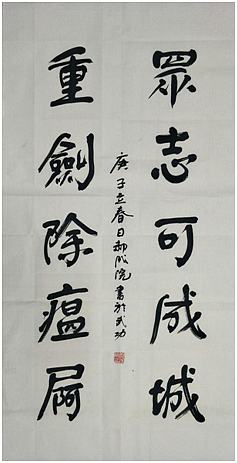 眾志可成城
庚子立春日郝成院書於武功
重劍除瘟屙